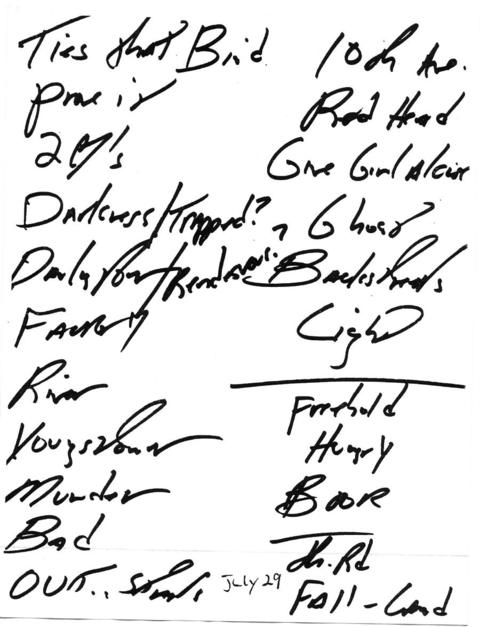 Ties that Bind
Prove it
2 ♥'s
Darkness/Trapped?
Darlington/Rendezvous?
Factory
River
Youngstown
Murder
Bad
OUT.. Streets
July 29
10th Ave.
Red Head
Give Girl A Kiss
Ghost
Backstreets
Light
Freehold
Hungry
Born
Th. Rd
FAll - Land